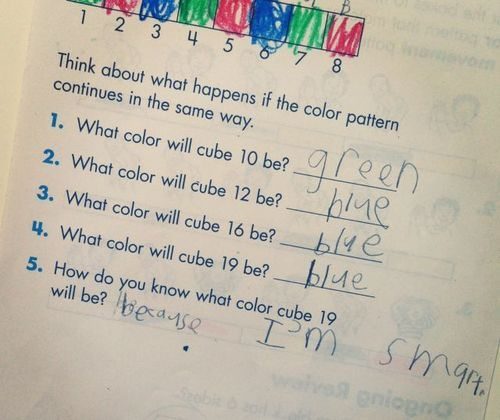 B
1 2 3 4 5 6 7 8
Think about what happens if the color pattern
continues in the same way.
1. What color will cube 10 be? green
2. What color will cube 12 be? blue
3. What color will cube 16 be? blue
4. What color will cube 19 be? blue
5. How do you know what color cube 19
will be? because I'm smart.